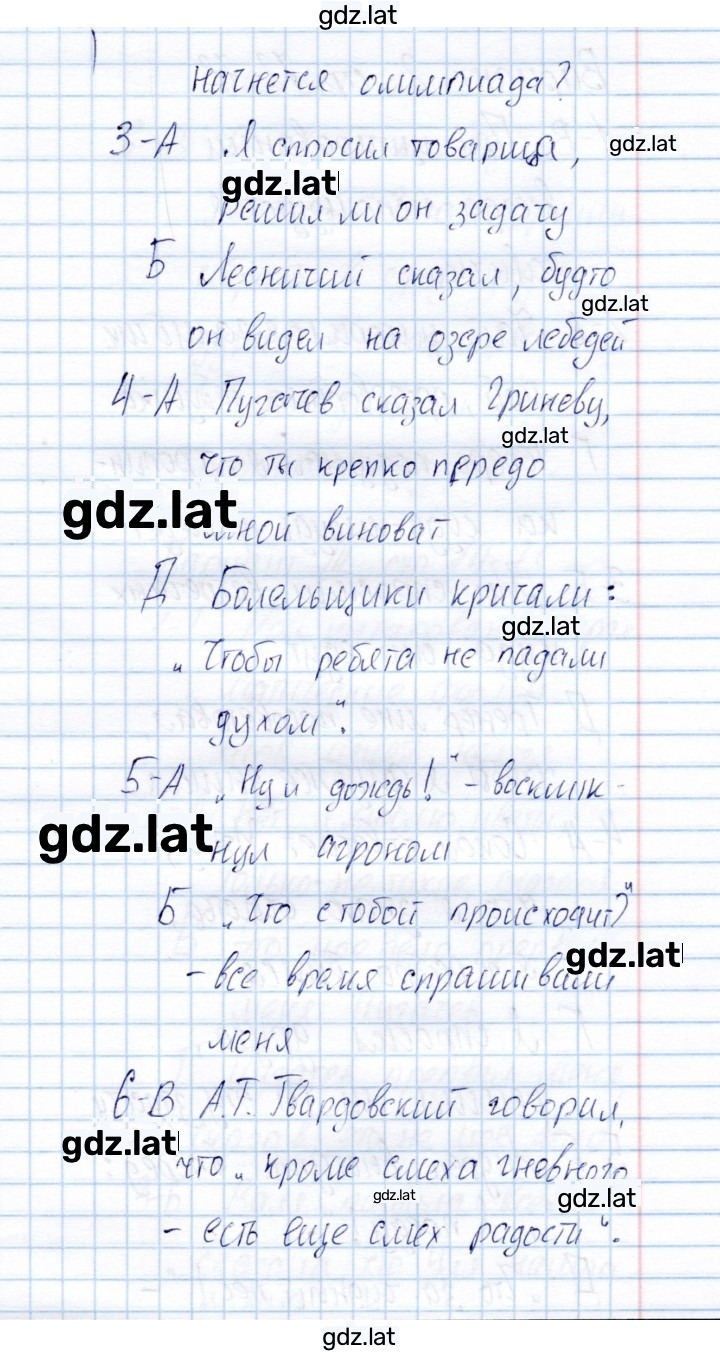 gdz.lat
начнется олимпиада?
3-А Я спросил товарища,
gdz.lat
gdz.lat
решил ли он задачу
Б Лесничий сказал, будто
gdz.lat
он видел на озере лебедей
4-А Пугачев сказал Гриневу,
gdz.lat
что ты крепко передо
gdz.lat
мной виноват
Д Болельщики кричали:
gdz.lat
„Чтобы ребята не падали
духом“.
5-А „Ну и дождь!“ - воскмик-
gdz.lat
нул агроном
Б „Что с тобой происходит?“
gdz.lat
- все время спрашивали
меня
6-В А.Т. Твардовский говорил,
gdz.lat
что „кроме смеха гневного
gdz.lat
gdz.lat
- есть еще смех радости“.
gdz.lat